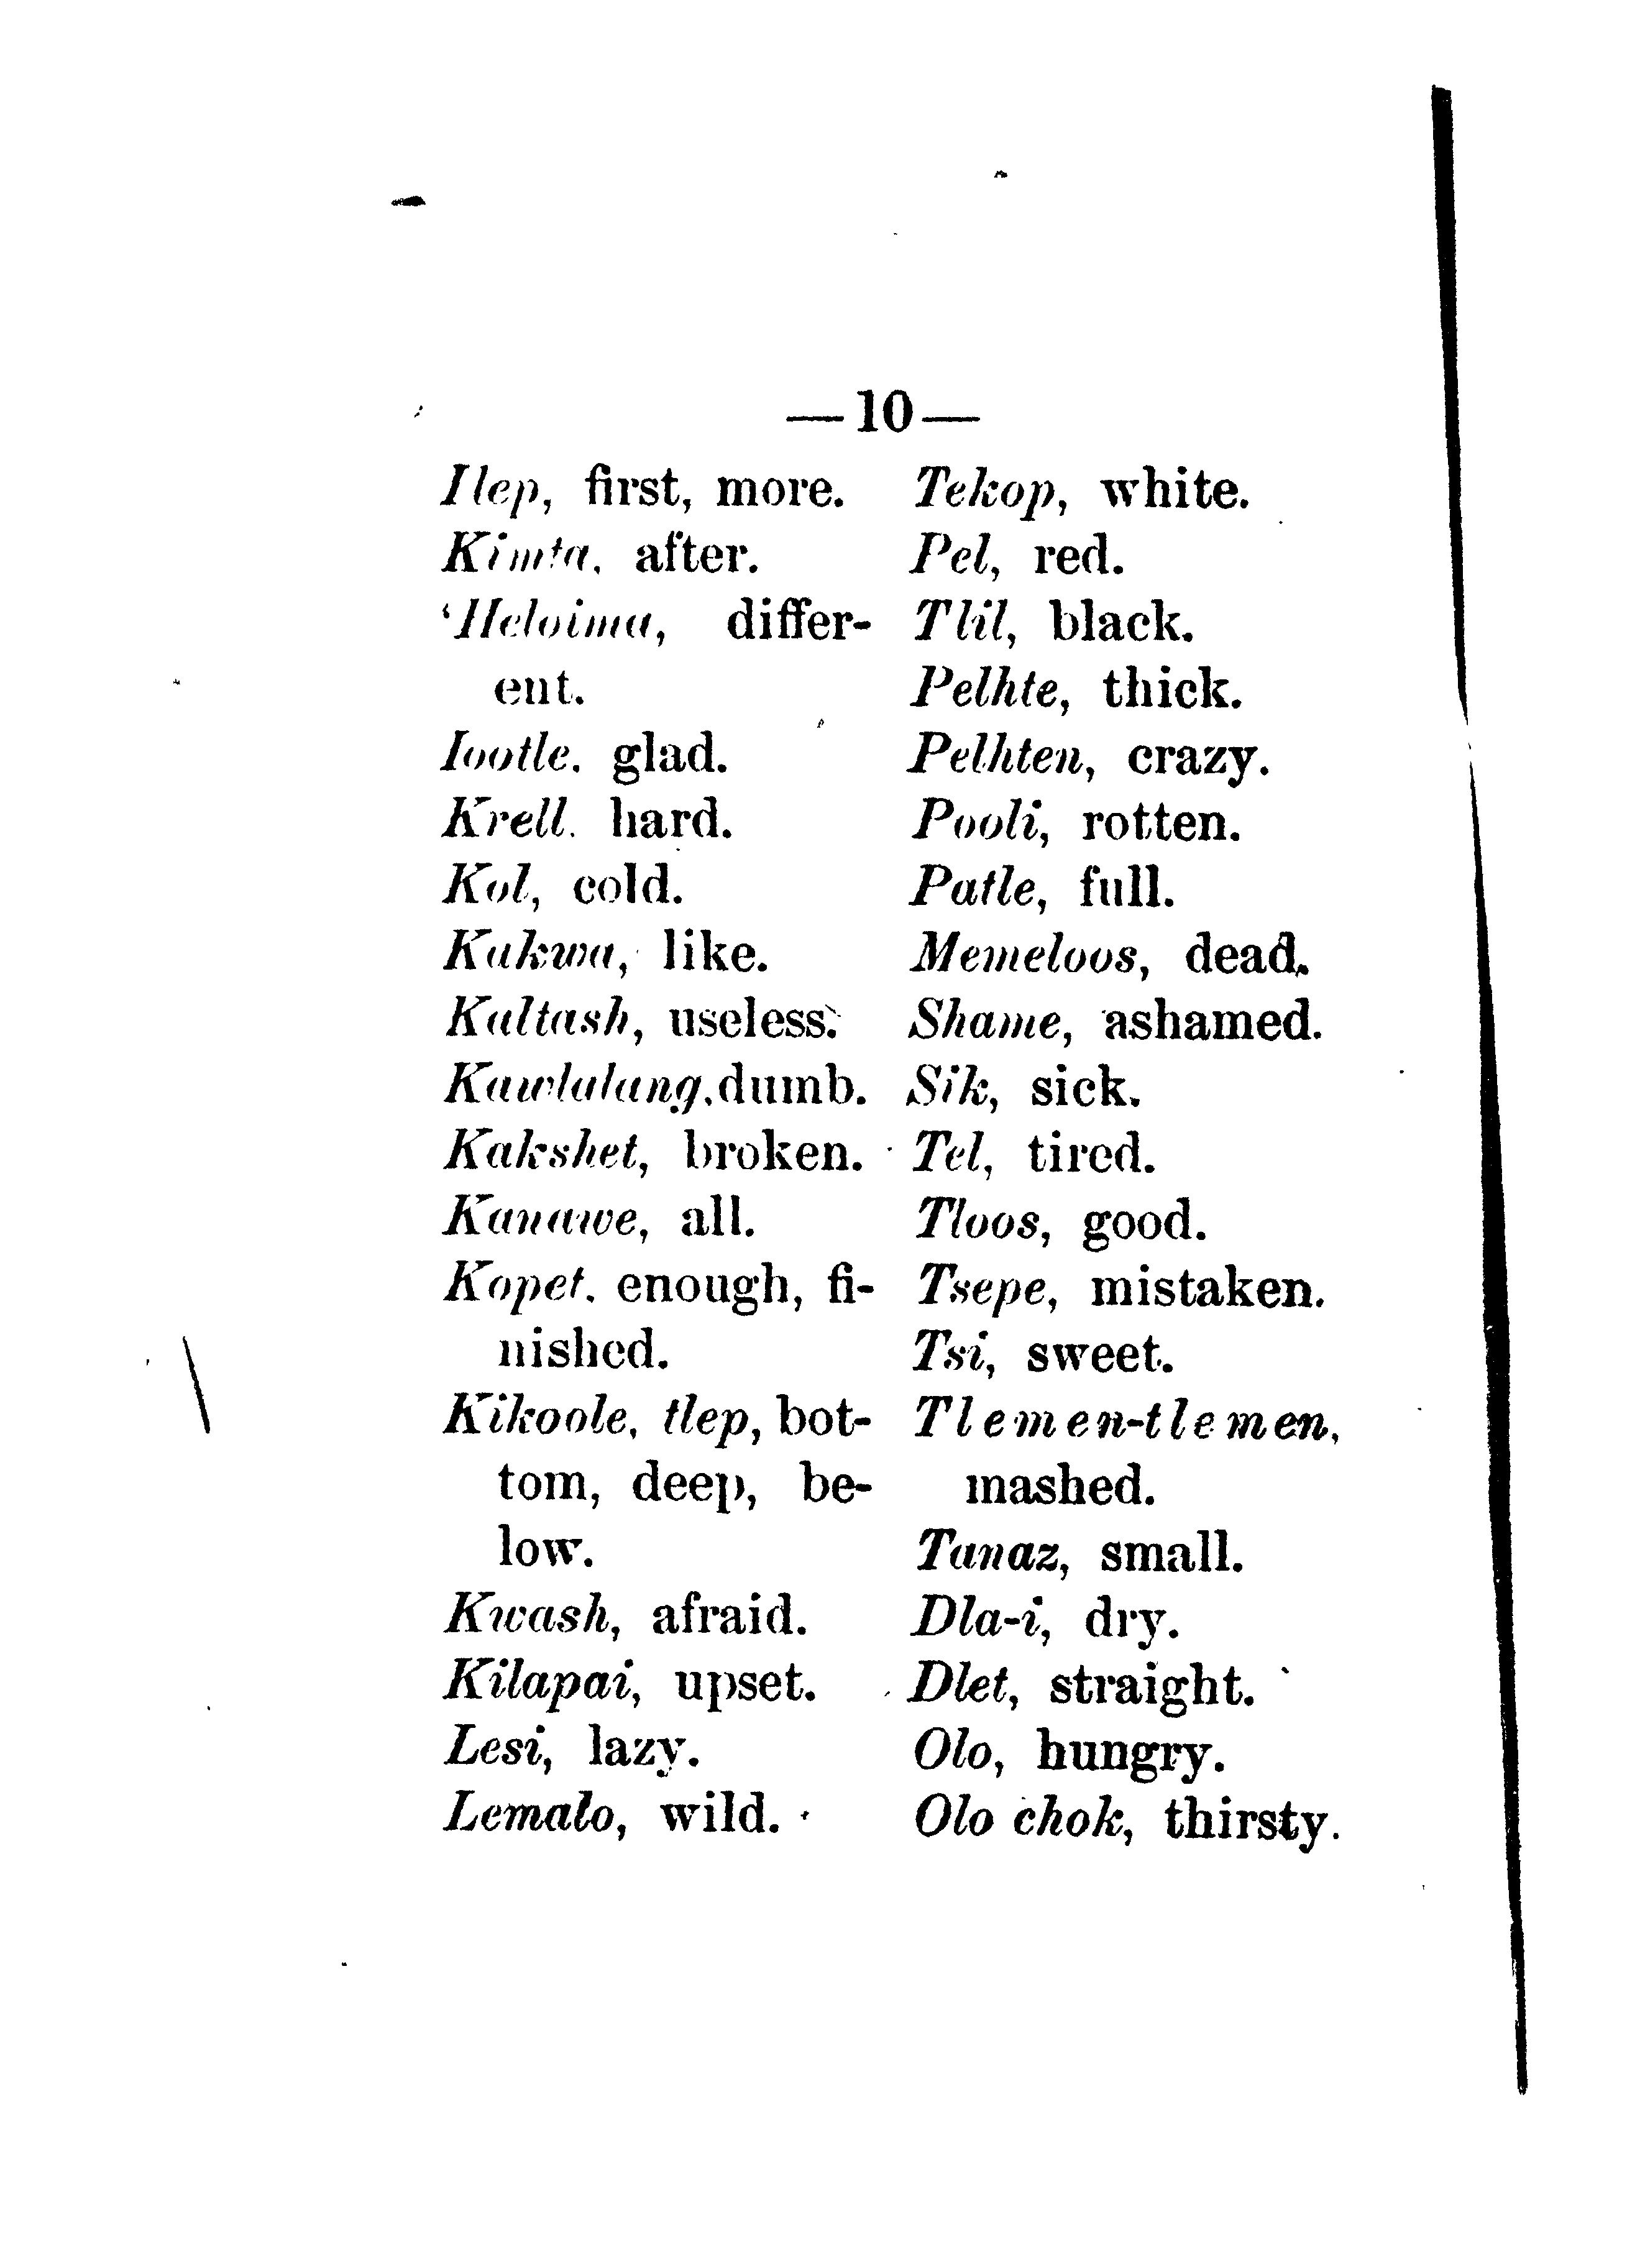 —10—
Ilep, first, more.
Kimta, after.
'Heloima, differ-
ent.
Iootle. glad.
Krell. hard.
Kol, cold.
Kakwa, like.
Kaltash, useless.
Kawlalang, dumb.
Kakshet, broken.
Kanawe, all.
Kopet. enough, fi-
nished.
Kikoole, tlep, bot-
tom, deep, be-
low.
Kwash, afraid.
Kilapai, upset.
Lesi, lazy.
Lemalo, wild.
Tekop, white.
Pel, red.
Tlil, black.
Pelhte, thick.
Pelhten, crazy.
Pooli, rotten.
Patle, full.
Memeloos, dead.
Shame, ashamed.
Sik, sick.
Tel, tired.
Tloos, good.
Tsepe, mistaken.
Tsi, sweet.
Tlemen-tlemen,
mashed.
Tanaz, small.
Dla-i, dry.
Dlet, straight.
Olo, hungry.
Olo chok, thirsty.